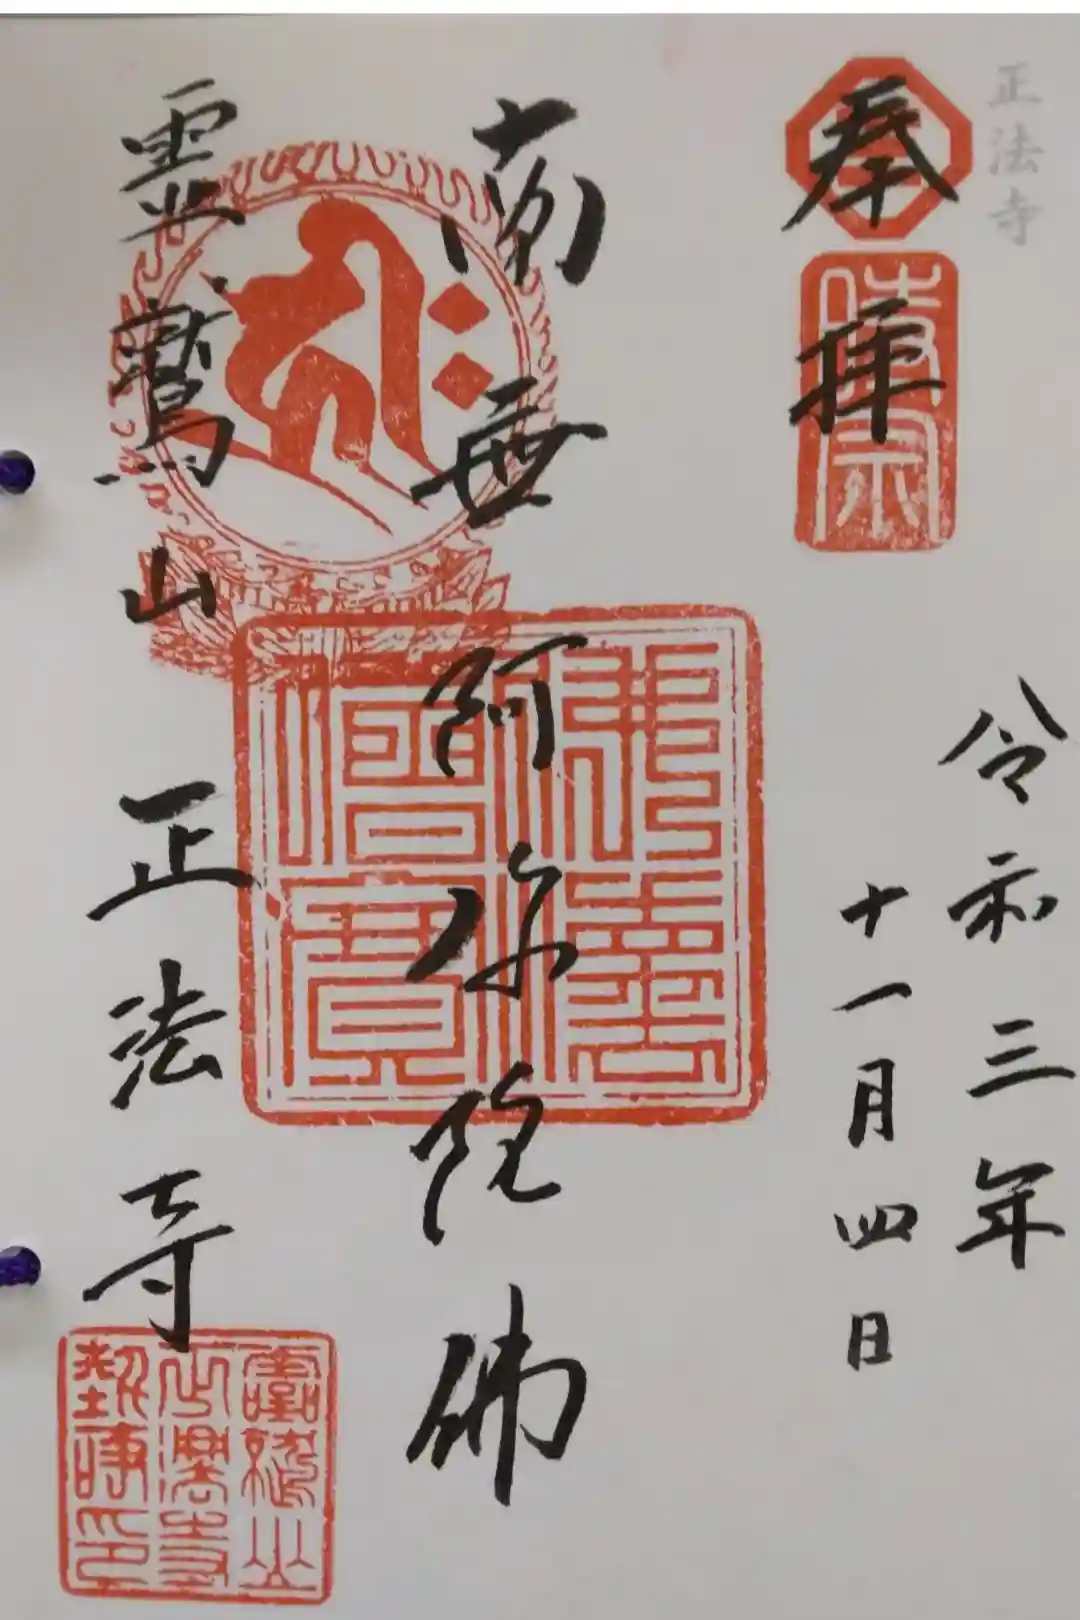 正法寺
奉拝
時宗
令和三年
十一月四日
南無阿弥陀佛
佛法僧寳
霊鷲山 正法寺
靈鷲山
正法寺